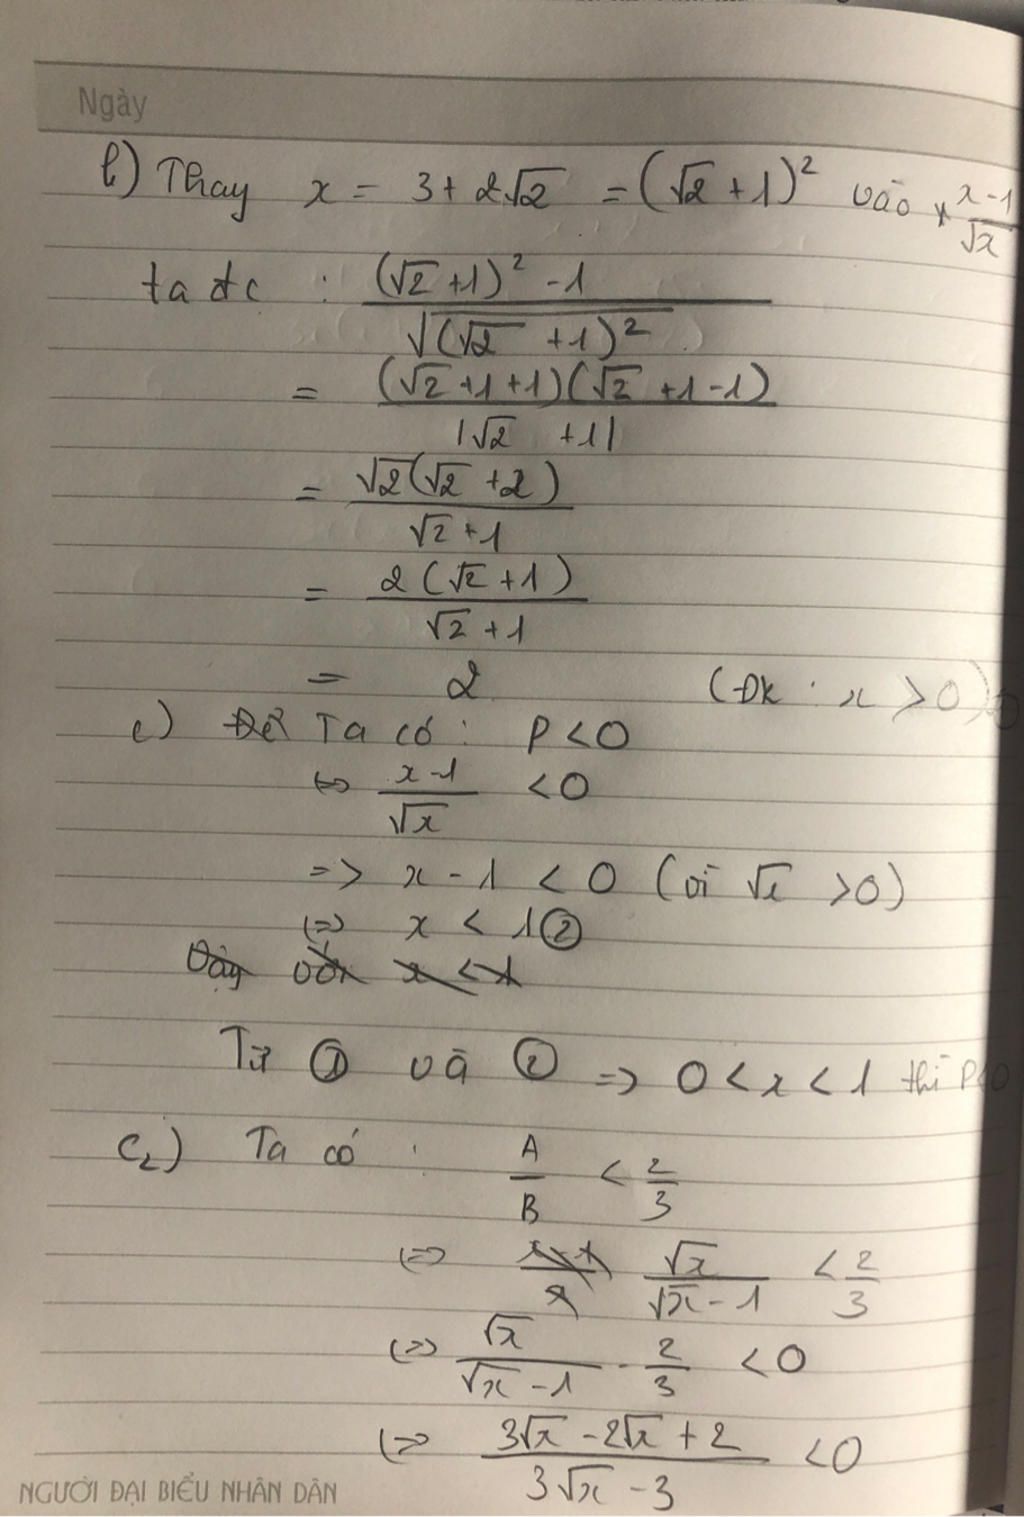 Ngày
b) Thay x = 3 + 2√2 = (√2 + 1)² vào x-1/√x
ta đc : (√2 + 1)² - 1 / √(√2 + 1)²
= (√2 + 1 + 1)(√2 + 1 - 1) / |√2 + 1|
= √2(√2 + 2) / √2 + 1
= 2(√2 + 1) / √2 + 1
= 2 (Đk : x > 0)
c) Để Ta có : P < 0
<=> x-1/√x < 0
=> x - 1 < 0 (vì √x > 0)
<=> x < 1 ②
Vậy với x < 1
Từ ① và ② => 0 < x < 1 thì P<0
C₂) Ta có : A/B < 2/3
<=> √x / √x - 1 < 2/3
<=> √x / √x - 1 - 2/3 < 0
<=> 3√x - 2√x + 2 / 3√x - 3 < 0
NGƯỜI ĐẠI BIỂU NHÂN DÂN